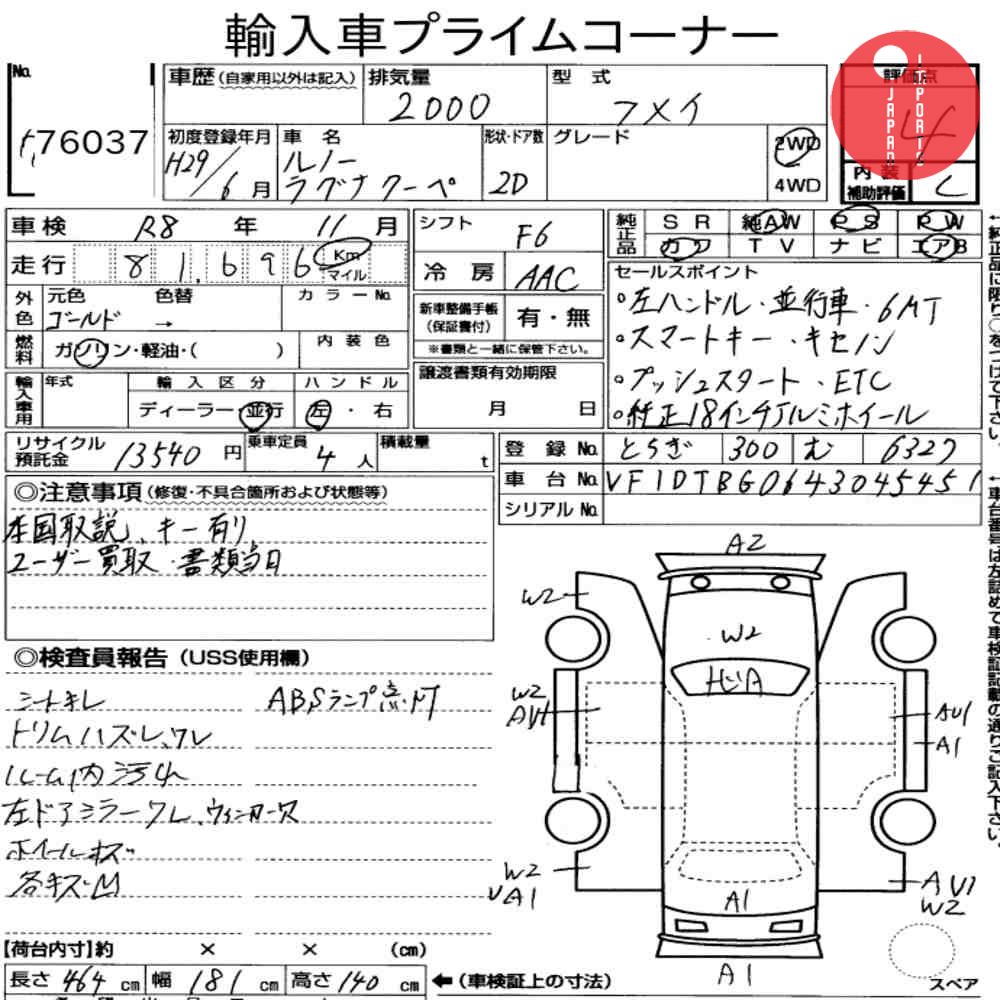 輸入車プライムコーナー
No.
76037
車歴 (自家用以外は記入)
排気量
2000
型式
フメイ
評価点
4
JAPAN
IMPORTIS
初度登録年月
H29/6月
車名
ルノー
ラグナクーペ
形状・ドア数
2D
グレード
2WD
4WD
内装
補助評価
C
車検 R8年 11月
走行 81,696 Km
マイル
シフト F6
冷房 AAC
純正品 SR 純AW PS PW
カワ TV ナビ エアB
外色 元色 色替 カラーNo.
ゴールド →
燃料 ガソリン・軽油・( )
内装色
新車整備手帳
(保証書付)
有・無
※書類と一緒に保管下さい。
セールスポイント
○左ハンドル・並行車・6MT
○スマートキー・キセノン
○プッシュスタート・ETC
○純正18インチアルミホイール
輸入車用 年式 輸入区分 ハンドル
ディーラー・並行 左・右
譲渡書類有効期限
月 日
リサイクル
預託金 13540円
乗車定員 4人
積載量 t
登録No. とちぎ 300 む 6327
車台No. VF1DTBG0643045451
シリアルNo.
◎注意事項 (修復・不具合箇所および状態等)
本国取説、キー有り
ユーザー買取・書類当日
◎検査員報告 (USS使用欄)
シートキレ ABSランプ点灯
トリムハズレ、ワレ
ルーム内汚れ
左ドアミラーワレ、ウィンカーワレ
ホイールキズ
各キズ凹
A2
W2
W2
ヒビA
W2
AU1
AU1
A1
W2
UA1
A1
AU1
W2
A1
スペア
【荷台内寸】約 × × (cm)
長さ 464 cm 幅 181 cm 高さ 140 cm
← (車検証上の寸法)
←純正品に限り○をつけて下さい。
←車台番号は左詰めで車検証記載の通りご記入下さい。